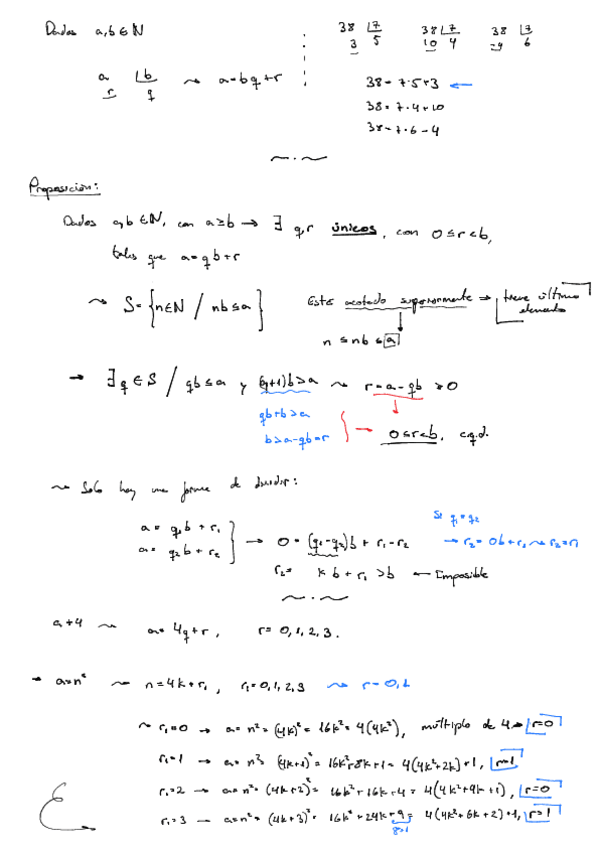 Dados a,b ∈ ℕ
a |b ⇝ a = bq + r
r q
38 |7 38 |7 38 |7
3 5 10 4 -4 6
38 = 7·5+3 ←
38 = 7·4+10
38 = 7·6-4
Proposición:
Dados a,b ∈ ℕ, con a ≥ b → ∃ q,r únicos, con 0 ≤ r < b,
tales que a = qb + r
⇝ S = {n ∈ ℕ / nb ≤ a} Está acotado superiormente → tiene último
elemento
n ≤ nb ≤ a
→ ∃ q ∈ S / qb ≤ a y (q+1)b > a ⇝ r = a - qb ≥ 0
qb+b > a
b > a-qb = r → 0 ≤ r < b, c.q.d.
⇝ Solo hay una forma de dividir:
a = q₁b + r₁
a = q₂b + r₂ → 0 = (q₁-q₂)b + r₁-r₂
r₂ = k b + r₁ > b ← Imposible
Si q₁ = q₂
→ r₂ = 0b + r₁ ⇝ r₂ = r₁
a÷4 ⇝ a = 4q+r, r = 0,1,2,3.
→ a = n² ⇝ n = 4k + r₁, r₁ = 0,1,2,3 ⇝ r = 0,1
⇝ r₁=0 → a = n² = (4k)² = 16k² = 4(4k²), múltiplo de 4 → r=0
r₁=1 → a = n² = (4k+1)² = 16k²+8k+1 = 4(4k²+2k)+1, r=1
r₁=2 → a = n² = (4k+2)² = 16k²+16k+4 = 4(4k²+4k+1), r=0
r₁=3 → a = n² = (4k+3)² = 16k²+24k+9 = 4(4k²+6k+2)+1, r=1
8+1